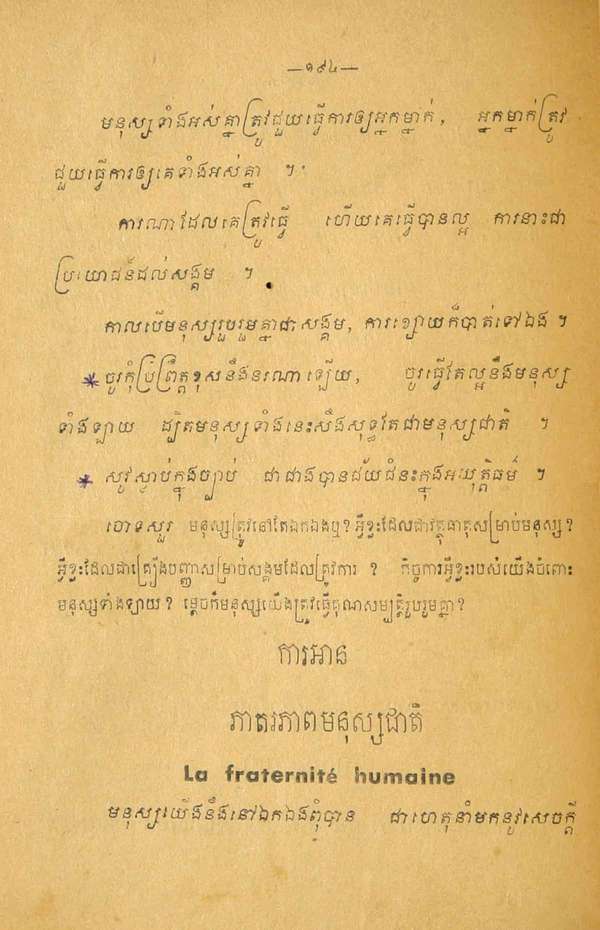 —១៩៤—
មនុស្សទាំងអស់គ្នាត្រូវជួយធ្វើការឲ្យអ្នកម្នាក់, អ្នកម្នាក់ត្រូវ
ជួយធ្វើការឲ្យគេទាំងអស់គ្នា ។
ការណាដែលគេត្រូវធ្វើ ហើយគេធ្វើបានល្អ ការនោះជា
ប្រយោជន៍ដល់សង្គម ។
កាលបើមនុស្សរួបរួមគ្នាជាសង្គម, ការខ្សោយក៏បាត់ទៅឯង ។
* ចូរកុំប្រព្រឹត្តខុសនឹងនរណាឡើយ, ចូរធ្វើតែល្អនឹងមនុស្ស
ទាំងឡាយ ដ្បិតមនុស្សទាំងនេះសឹងសុទ្ធតែជាមនុស្សជាតិ ។
* សូវស្លាប់ក្នុងច្បាប់ ជាជាងបានជ័យជំនះក្នុងអយុត្តិធម៌ ។
ចោទសួរ មនុស្សត្រូវនៅតែឯកឯងឬ? អ្វីខ្លះដែលជាវត្ថុធាតុសម្រាប់មនុស្ស?
អ្វីខ្លះដែលជាគ្រឿងបញ្ញាសម្រាប់សង្គមដែលត្រូវការ ? កិច្ចការអ្វីខ្លះរបស់យើងចំពោះ
មនុស្សទាំងឡាយ? ម្ដេចក៏មនុស្សយើងត្រូវធ្វើគុណសម្បត្តិរួបរួមគ្នា?
ការអាន
ភាតរភាពមនុស្សជាតិ
La fraternité humaine
មនុស្សយើងនឹងនៅឯកឯងពុំបាន ជាហេតុនាំមកនូវសេចក្ដី